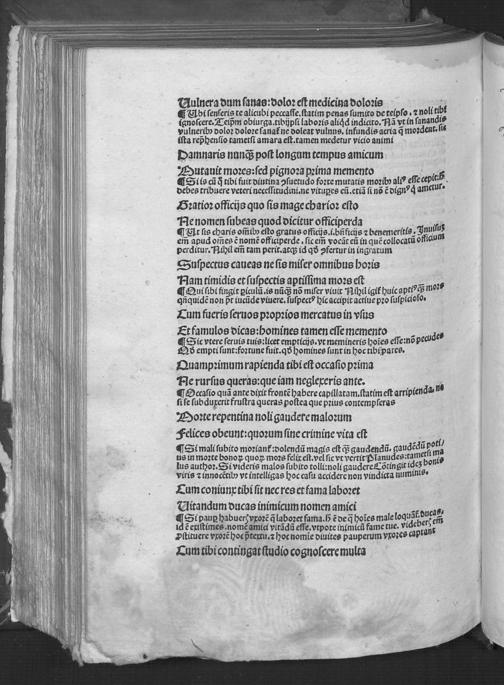 Vulnera dum sanas: dolor est medicina doloris
¶ Ubi senseris te alicubi peccasse. statim penas sumito de teipso. ⁊ noli tibi
ignoscere. Teip̄m obiurga. tibijpsi laboris aliqd indicito. Nā vt in sanandis
vulneribꝰ dolor dolore sanat᷑ ne doleat vulnus. infundis acria q̄ mordent. sic
ista rep̄hensio tametsi amara est. tamen medetur vicio animi
Damnaris nunq̄ꝫ post longum tempus amicum
Mutauit mores: sed pignora prima memento
¶ Si is cū q̄ tibi fuit diutina ꝯsuetudo forte mutatis moribꝰ aliꝰ esse cepit:
debes tribuere veteri necessitudini. ne vitupes eū. etiā si nō ē dignꝰ q̄ ametur.
Gratior officijs quo sis mage charior esto
Ne nomen subeas quod dicitur officiperda
¶ Ut sis charis om̄ibꝰ esto gratus officijs. i. b̄nficijs ⁊ benemeritis. Inuisus
em̄ apud om̄es ē nomē officiperde. sic em̄ vocāt eū in quē collocatū officium
perditur. Nihil em̄ tam perit. atqꝫ id qd̓ ꝯfertur in ingratum
Suspectus caueas ne sis miser omnibus horis
Nam timidis et suspectis aptissima mors est
¶ Qui sibi fingit picula. is nūq̄ꝫ nō miser viuit Nihil igit᷑ huic aptiꝰ q̄ꝫ mors
qn̄quidē non pt iucūde viuere. suspectꝰ hic accipit actiue pro suspicioso.
Cum fueris seruos proprios mercatus in vsus
Et famulos dicas: homines tamen esse memento
¶ Sic vtere seruis tuis: licet empticijs. vt memineris hoies esse: nō pecudes
Qd̓ empti sunt: fortune fuit. qd̓ homines sunt in hoc tibi pares.
Quamprimum rapienda tibi est occasio prima
Ne rursus queras: que iam neglexeris ante.
¶ Occasio quā ante dixit frontē habere capillatam. statim est arripienda. ne
si se subduxerit frustra queras postea que prius contempseras
Morte repentina noli gaudere malorum
Felices obeunt: quorum sine crimine vita est
¶ Si mali subito moriant᷑: dolendū magis est q̄ꝫ gaudendū. gaudēdū poti/
us in morte bonoꝝ quoꝝ mors felix est. vel sic vt vertit Planudes: tametsi ma
lus author. Si videris malos subito tolli: noli gaudere. Cōtingit idē bonis
viris ⁊ innocētibꝰ vt intelligas hoc casu accidere non vindicta numinis.
Cum coniunx tibi sit nec res et fama laboret
Vitandum ducas inimicum nomen amici
¶ Si paup habueris vxorē q̄ laboret fama. h̄ ē de q̄ hoīes male loquāt᷑. ducas.
id ē existimes. nomē amici vitādū esse. vtpote inimicū fame tue. videberis em̄
ꝓstituere vxorē hoc p̄textu. ⁊ hoc nomīe diuites pauperum vxores captant
Cum tibi contingat studio cognoscere multa